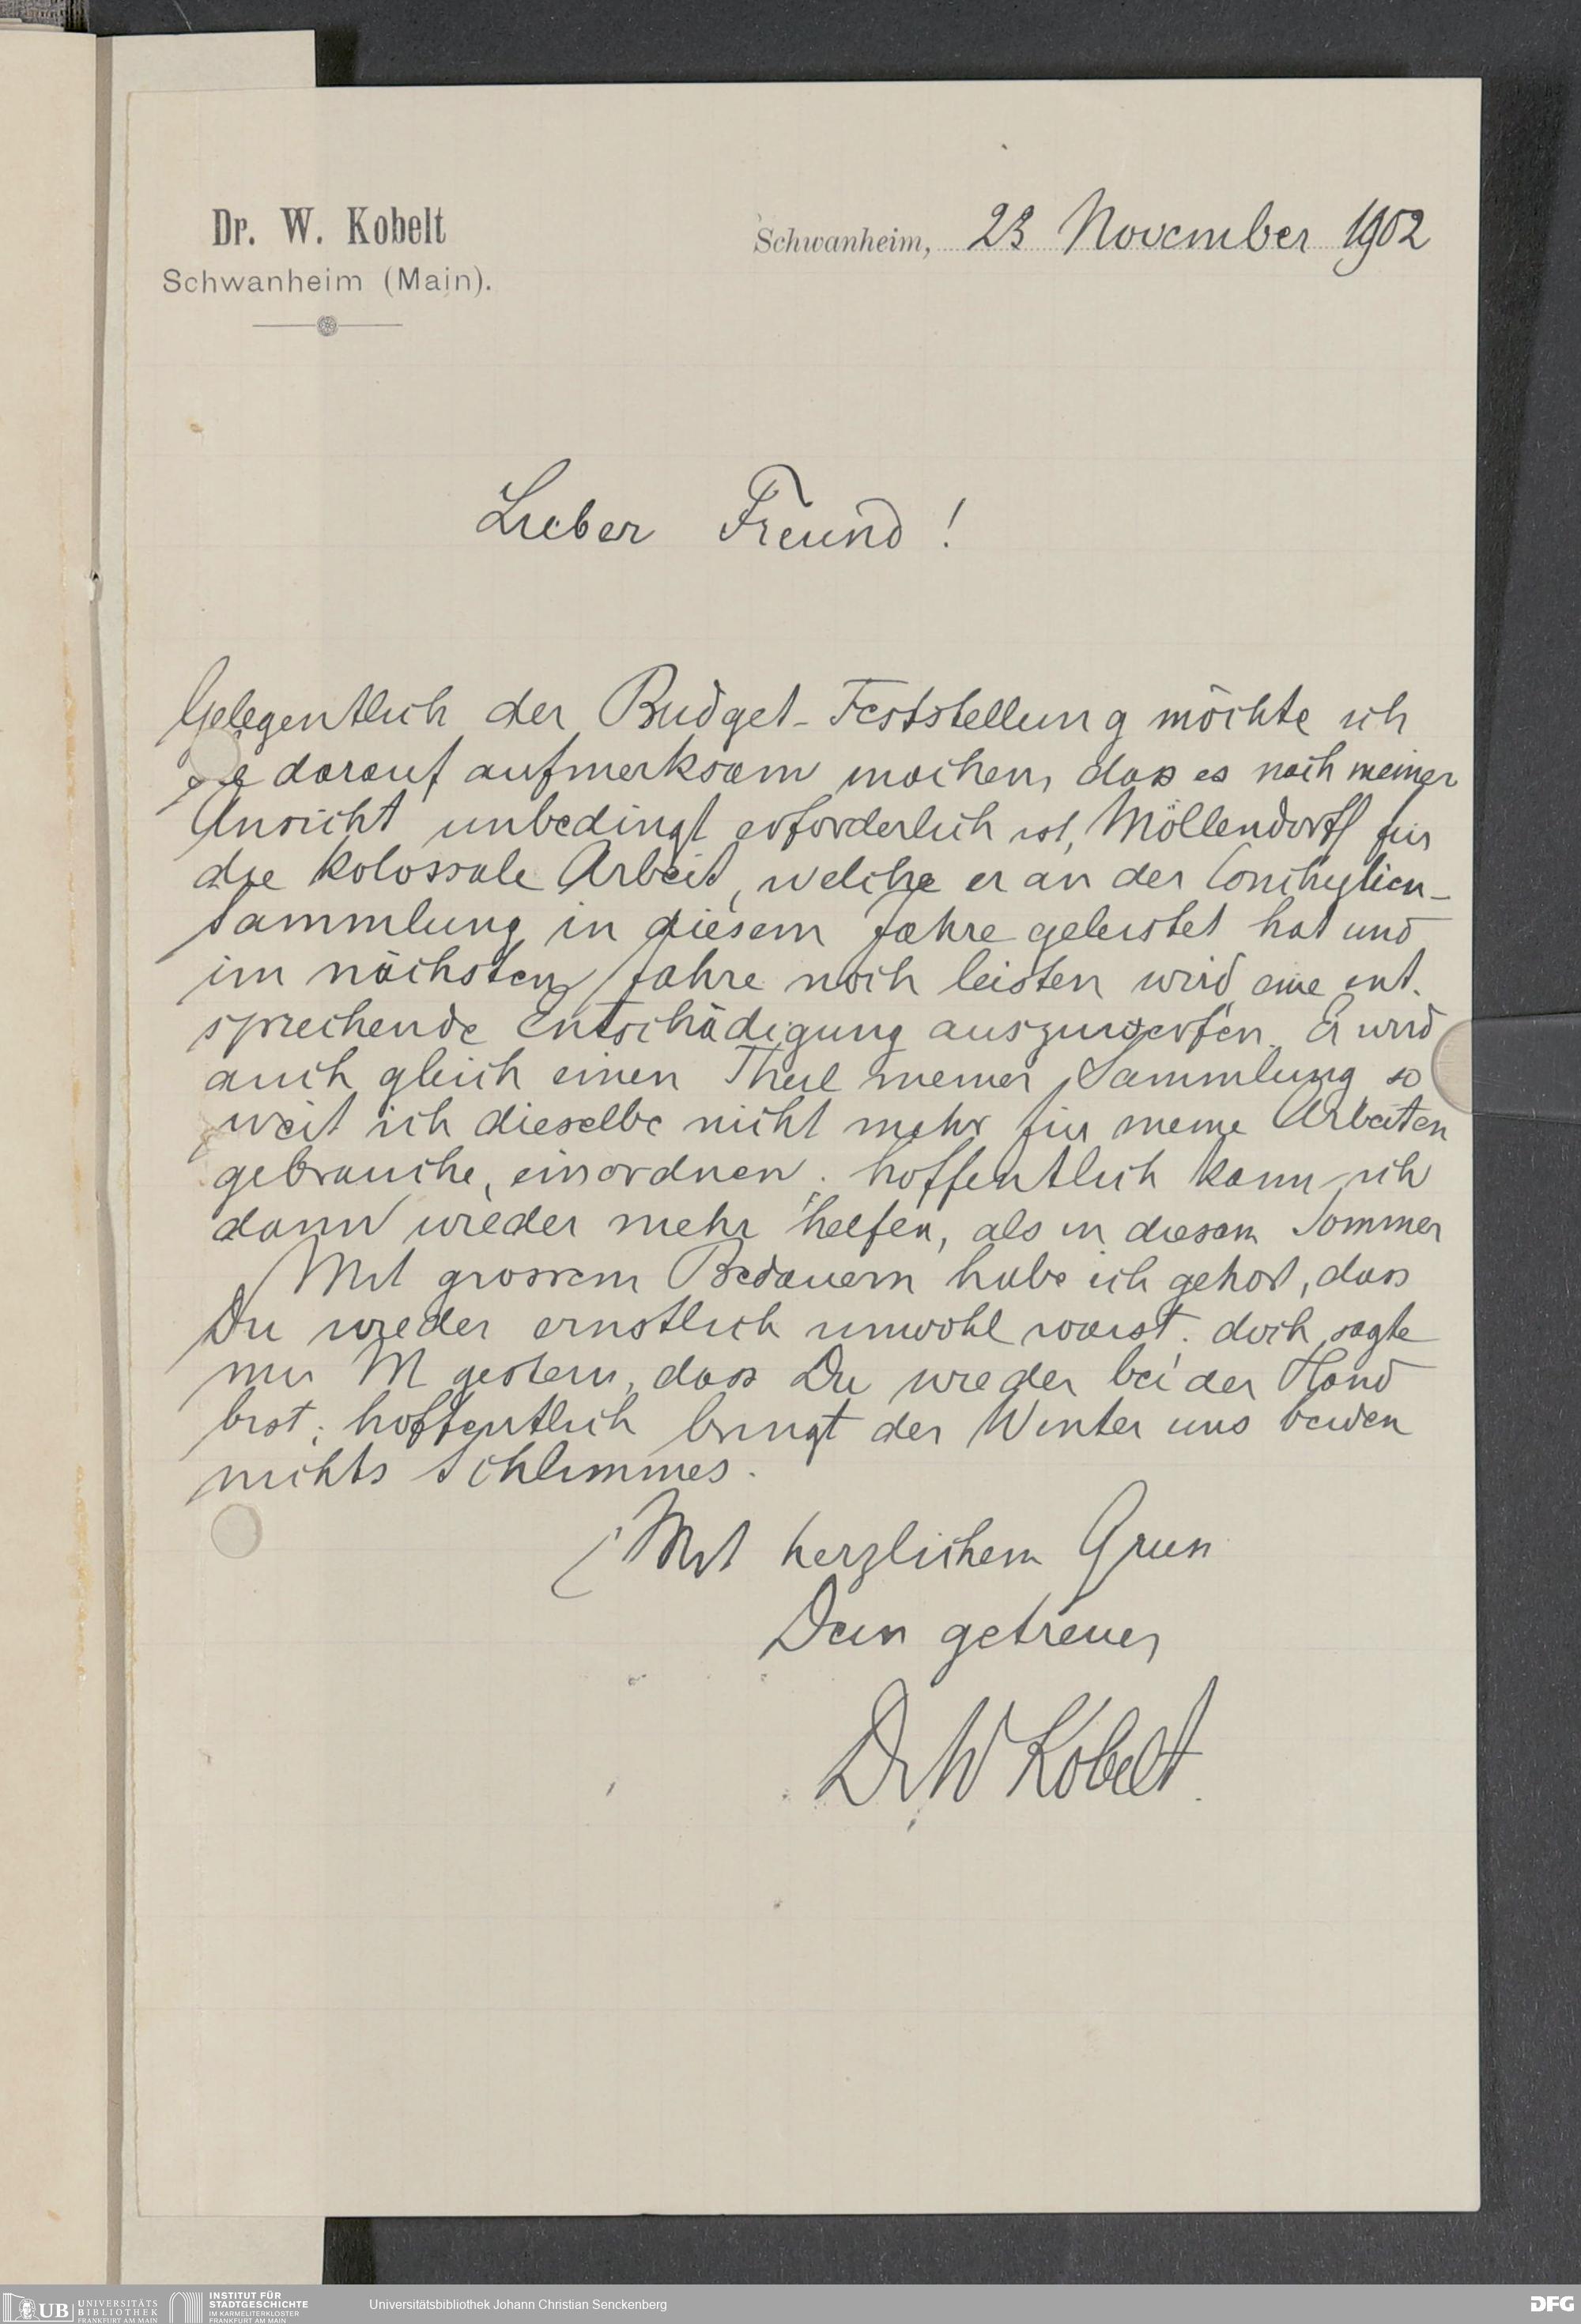 Dr. W. Kobelt
Schwanheim (Main).
Schwanheim, 23 November 1902
Lieber Freund!
Gelegentlich der Budget-Feststellung möchte ich
darauf aufmerksam machen, dass es nach meiner
Ansicht unbedingt erforderlich ist, Möllendorff für
die kolossale Arbeit, welche er an der Conchylien-
sammlung in diesem Jahre geleistet hat und
im nächsten Jahre noch leisten wird eine ent-
sprechende Entschädigung auszuwerfen. Er wird
auch gleich einen Theil meiner Sammlung so
weit ich dieselbe nicht mehr für meine Arbeiten
gebrauche, einordnen; hoffentlich kann ich
dann wieder mehr helfen, als in diesem Sommer
Mit grossem Bedauern habe ich gehört, dass
Du wieder ernstlich unwohl warst; doch sagte
mir M gestern, dass Du wieder bei der Hand
bist; hoffentlich bringt der Winter uns beiden
nichts Schlimmes.
Mit herzlichem Gruss
Dein getreuer
Dr W Kobelt
UB UNIVERSITÄTS
BIBLIOTHEK
FRANKFURT AM MAIN
INSTITUT FÜR
STADTGESCHICHTE
IM KARMELITERKLOSTER
FRANKFURT AM MAIN
Universitätsbibliothek Johann Christian Senckenberg
DFG